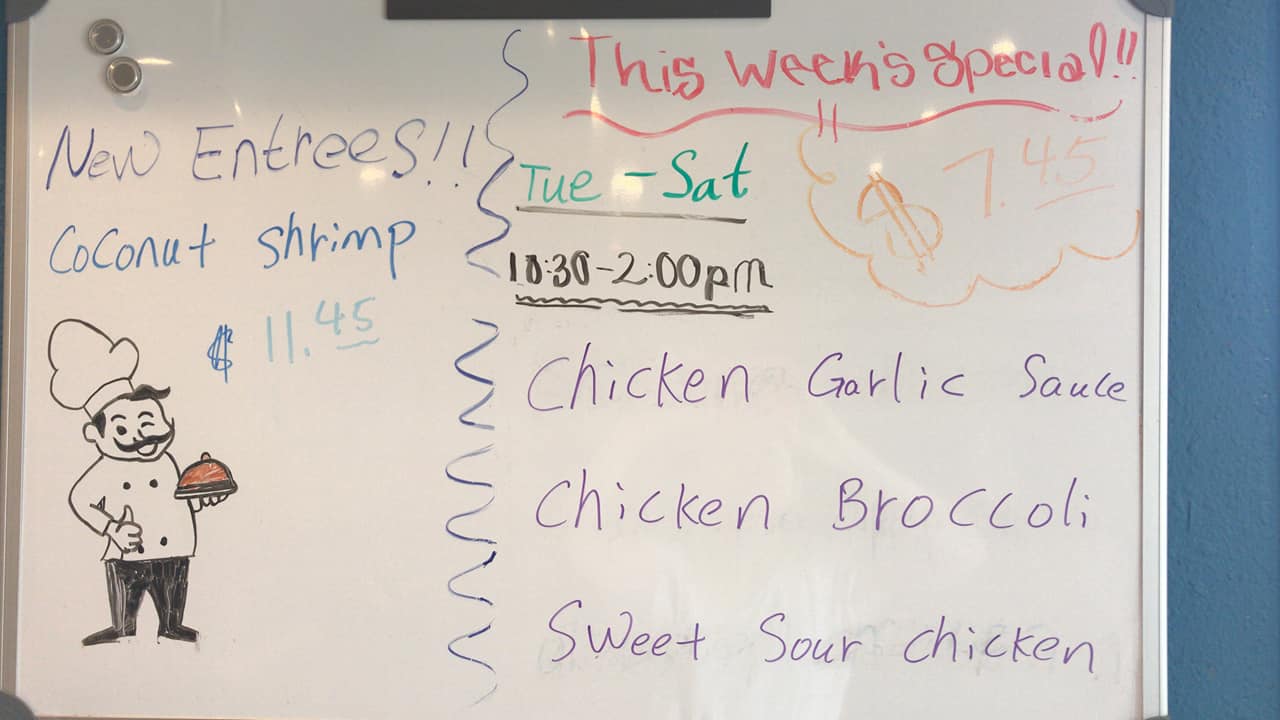 New Entrees!!
Coconut shrimp
$ 11.45
This week's special!!
$ 7.45
Tue - Sat
10:30-2:00pm
Chicken Garlic Sauce
Chicken Broccoli
Sweet Sour chicken